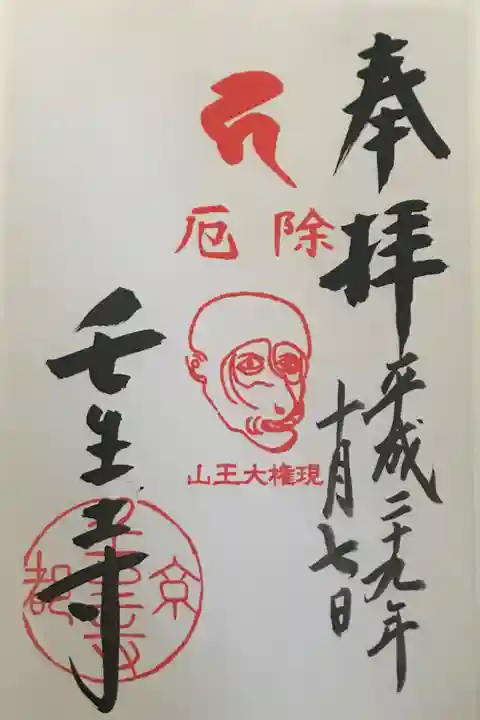 奉拝
平成二十九年
十月七日
除厄
現権大王山
壬生寺
京都